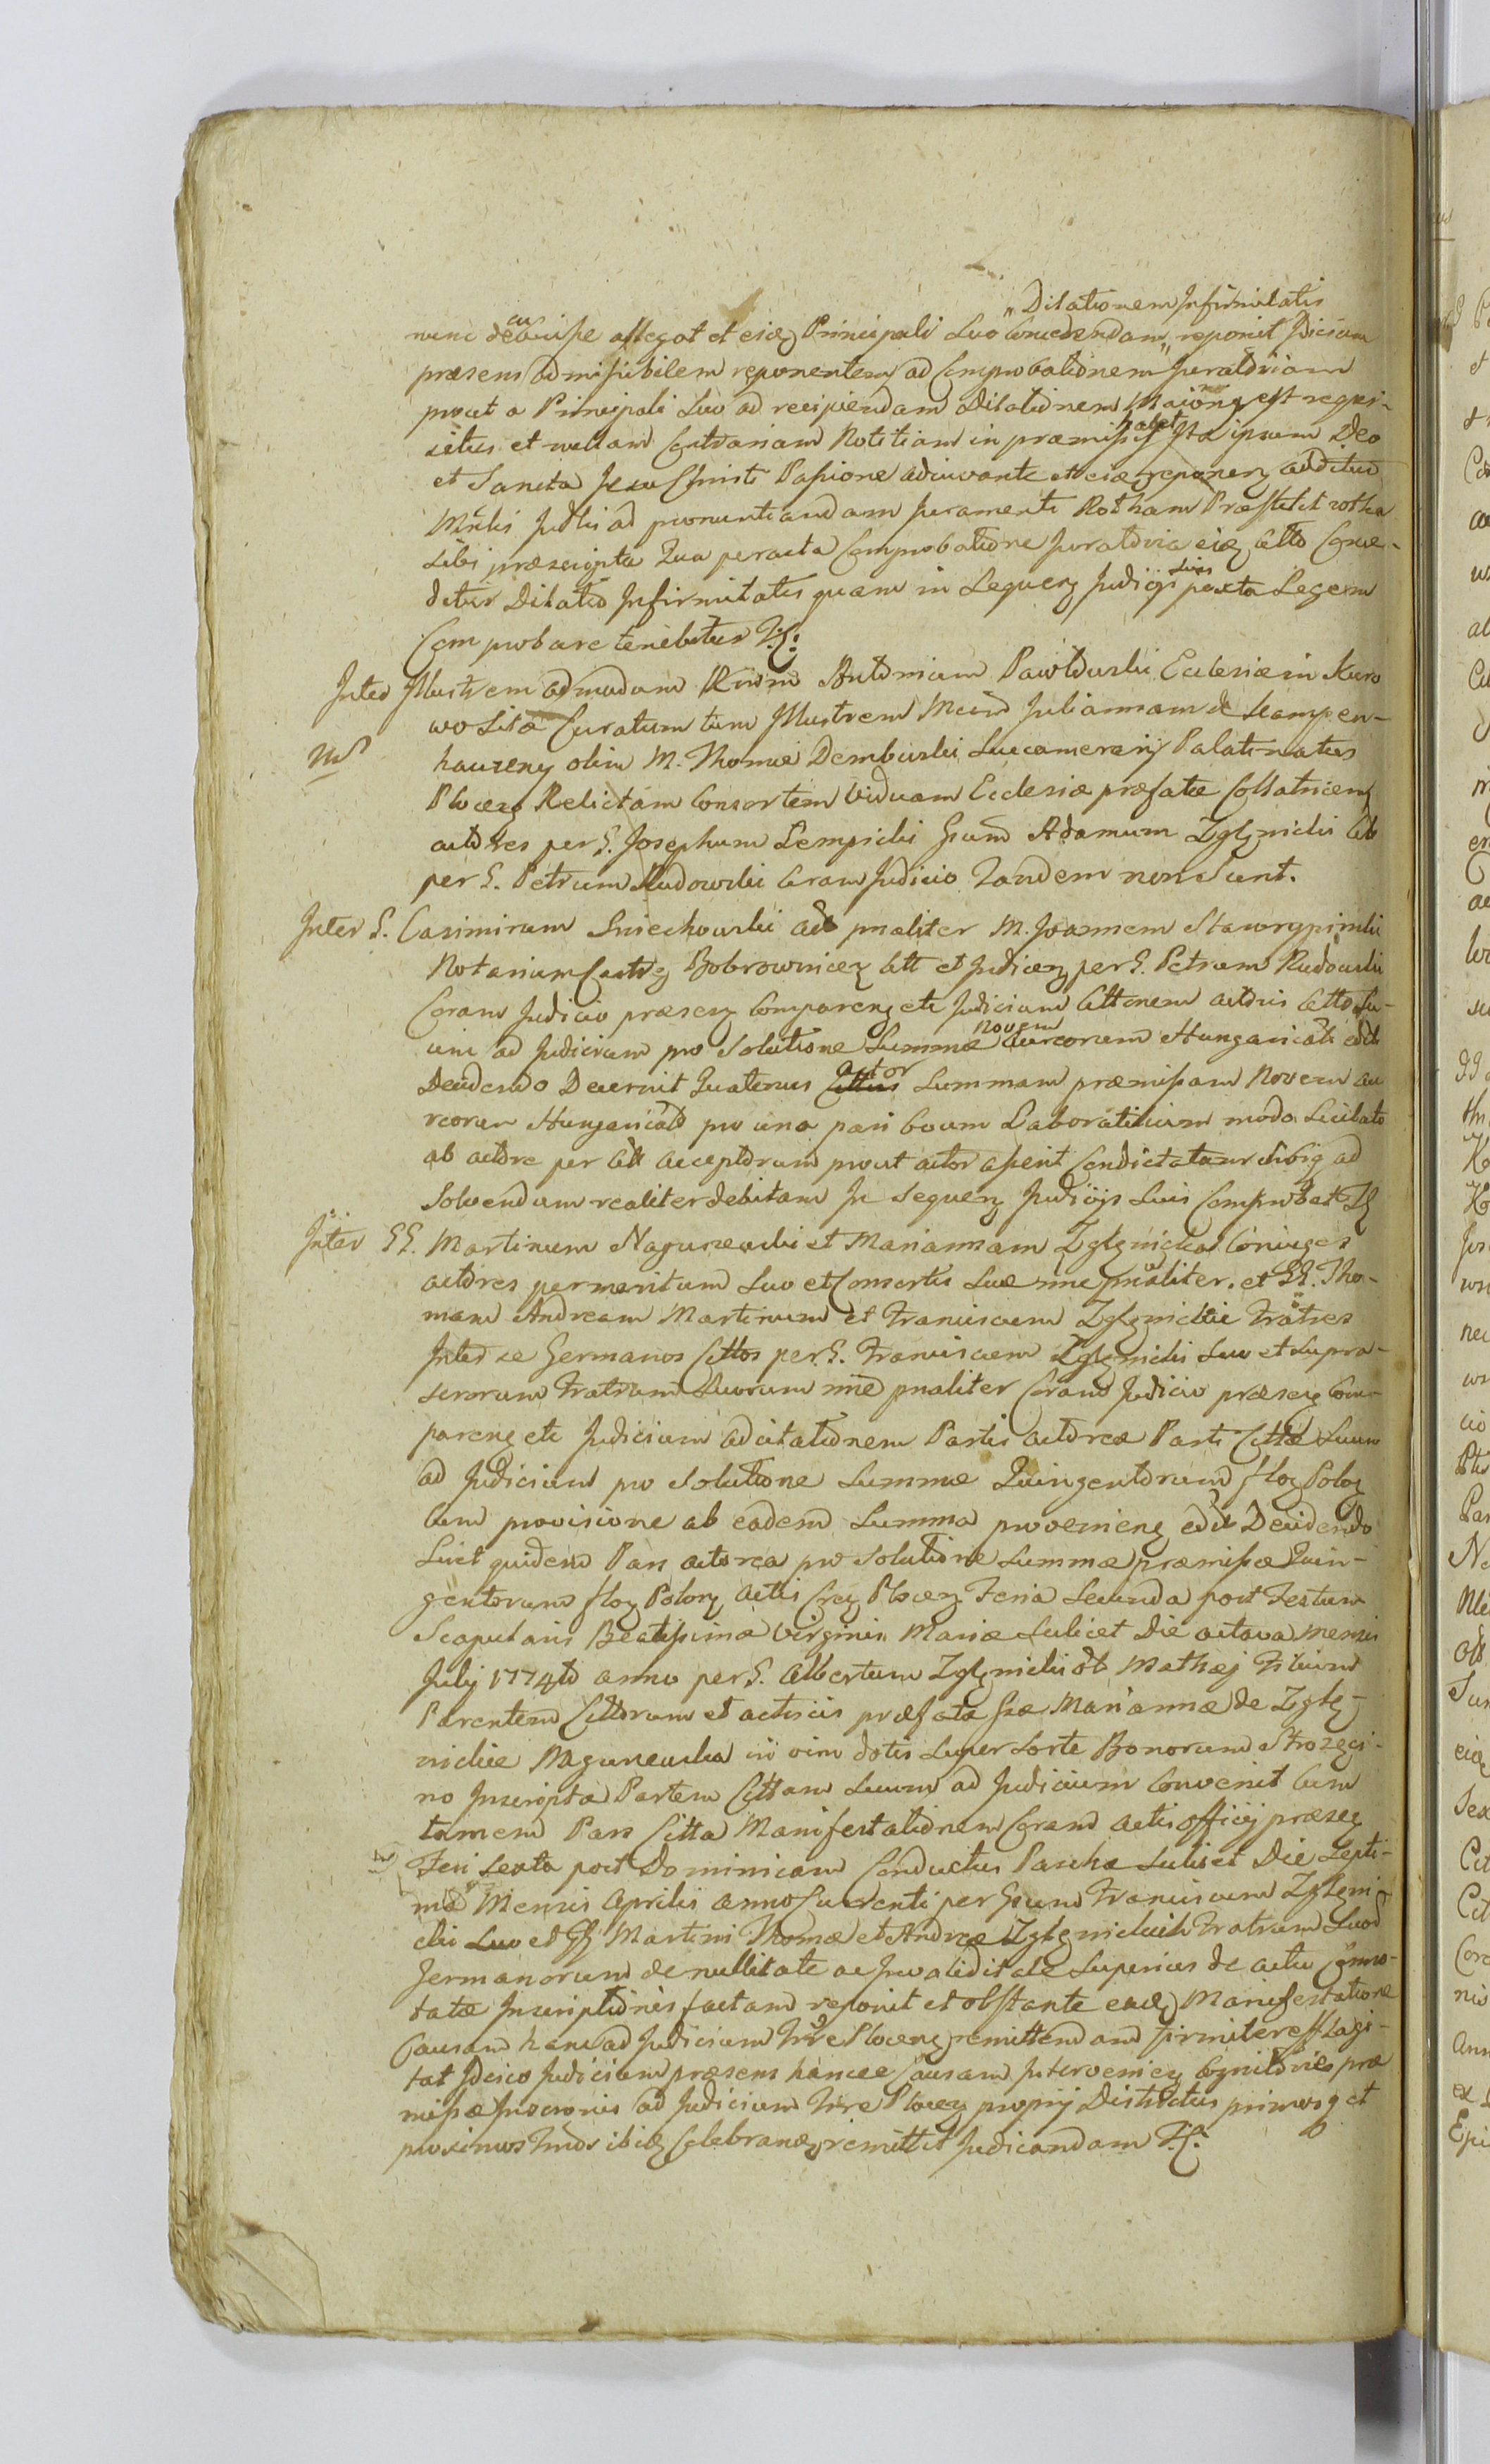 "Dilationem Infirmitatis
nunc decubuisse allegat et eieq Principali Suo Concedendam" reponit Jdicium
præsens admissibilem reponentem ad Comprobationem Juratoriam
prout a Principali Suo ad recipiendam Dilationem Maiorem est requi-
situs et nullam Contrariam Notitiam in præmissis habet Ita ipsum Deo
et Sancta Jesu Christi Passione adiuvante et eieq reponen auditus
Mnlis Judlis ad pronuntiandam Juramenti Rotham Præstitit rotha
sibi præscripta Qua peracta Comprobatione Juratoria eiq Citto Conce-
ditur Dilatio Infirmitatis quam in Sequen Judicijs Suis juxta Legem
Comprobare tenebitur
Inter Illustrem admodum Rndm Antonium Pawlowski Ecclesiæ in Kuro
wo Sitæ Curatum tum Illustrem Mcam Juliannam de Kampen-
hauzeny olim M. Thomæ Dembowski Succamerarij Palatinatus
Ploceen Relictam Consortem Viduam Ecclesiæ præfatæ Collatricem
actores per G. Josephum Lempicki Gsum Adamum Zglenicki Citt
per G. Petrum Rudowski Coram Judicio Tandem non Sunt.
Inter G. Casimirum Sniechowski act pnaliter M. Joannem Stawrypinski
Notarium Castr Bobrownicen Citt et Judicen per G. Petrum Rudowski
Coram Judicio præsen Comparen etc Judicium Cittonem actoris Citto Su-
um ad Judicium pro Solutione Summæ novem aureorum Hungaricali edit
Decidendo Decernit Quatenus actor Summam præmissam Novem au
reorum Hungarical pro uno pari boum Laboratitium modo Sucitato
ab actore per Citt acceptorum prout actor asserit Condictatam Sibiq ad
Solvendum realiter debitam In Sequen Judicijs Suis Comprobet
Inter GG. Martinum Nagurzewski et Mariannam Zglenickas Coniuges
actores per maritum Suo et Consortis Suæ nne pnaliter. et GG. Tho-
mam Andream Martinum et Franciscum Zglenickie Fratres
Inter se Germanos Cittos per G. Franciscum Zglenicki Suo et Supra-
scrorum Fratrum Suorum nne pnaliter Coram Judicio præsen Com-
paren etc Judicium ad citationem Partis actoreæ Parti Cittæ Suum
ad Judicium pro Solutione Summæ Quingentorum flor Polon
cum provisione ab eadem Summa provenien edit Decidendo
Licet quidem Pars actorea pro Solutione Summæ præmissæ Quin-
gentorum flor Polon actis Cren Plocen Feria Secunda post Festum
Scapularis Beatissimæ Virginis Mariæ Sulicet Die octava mensis
Julij 1774to anno per G. Albertum Zglenicki ol Mathæj Filium
Parentem Cittorum et actricis præfatæ Gsæ Mariannæ de Zgle-
nickie Nagurzewska in vim dotis Super Sorte Bonorum Strozeci-
no Inscripta Partem Cittam Suum ad Judicium Convenit Cum
tamen Pars Citta Manifestationem Coram actis officij præsen
Feri Sexta post Dominicam Conductus Paschæ Sulicet Die Septi-
ma Mensis Aprilis anno Currenti per Gsum Franciscum Zgleni
cki Suo et GG Martini Thomæ et Andreæ Zglenickich Fratrum Suor
Germanorum de nullitate ac Invaliditate Superius de actu Conno-
tatæ Inscriptionis factam reponit et obstante eaeq Manifestatione
Causam hanc ad Judicium Trre Plocen remittendam firmiter efflagi-
tat Ideo Judicium præsens hancce Causam Intervenien Cognitoris præ
missæ Inscronis ad Judicium Trre Plocen proprij Districtus primosq et
proximos Tnos ibiq Celebrand remittit Judicandam